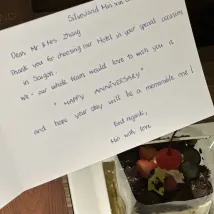 Silverland Min
Dear Mr & Mrs Zhang
Thank you for choosing our Hotel in your special occasion
in Saigon.
We - our whole team would love to wish you a
" HAPPY ANNIVERSARY "
and hope your stay will be a memorable one!
Best regards,
Min with love